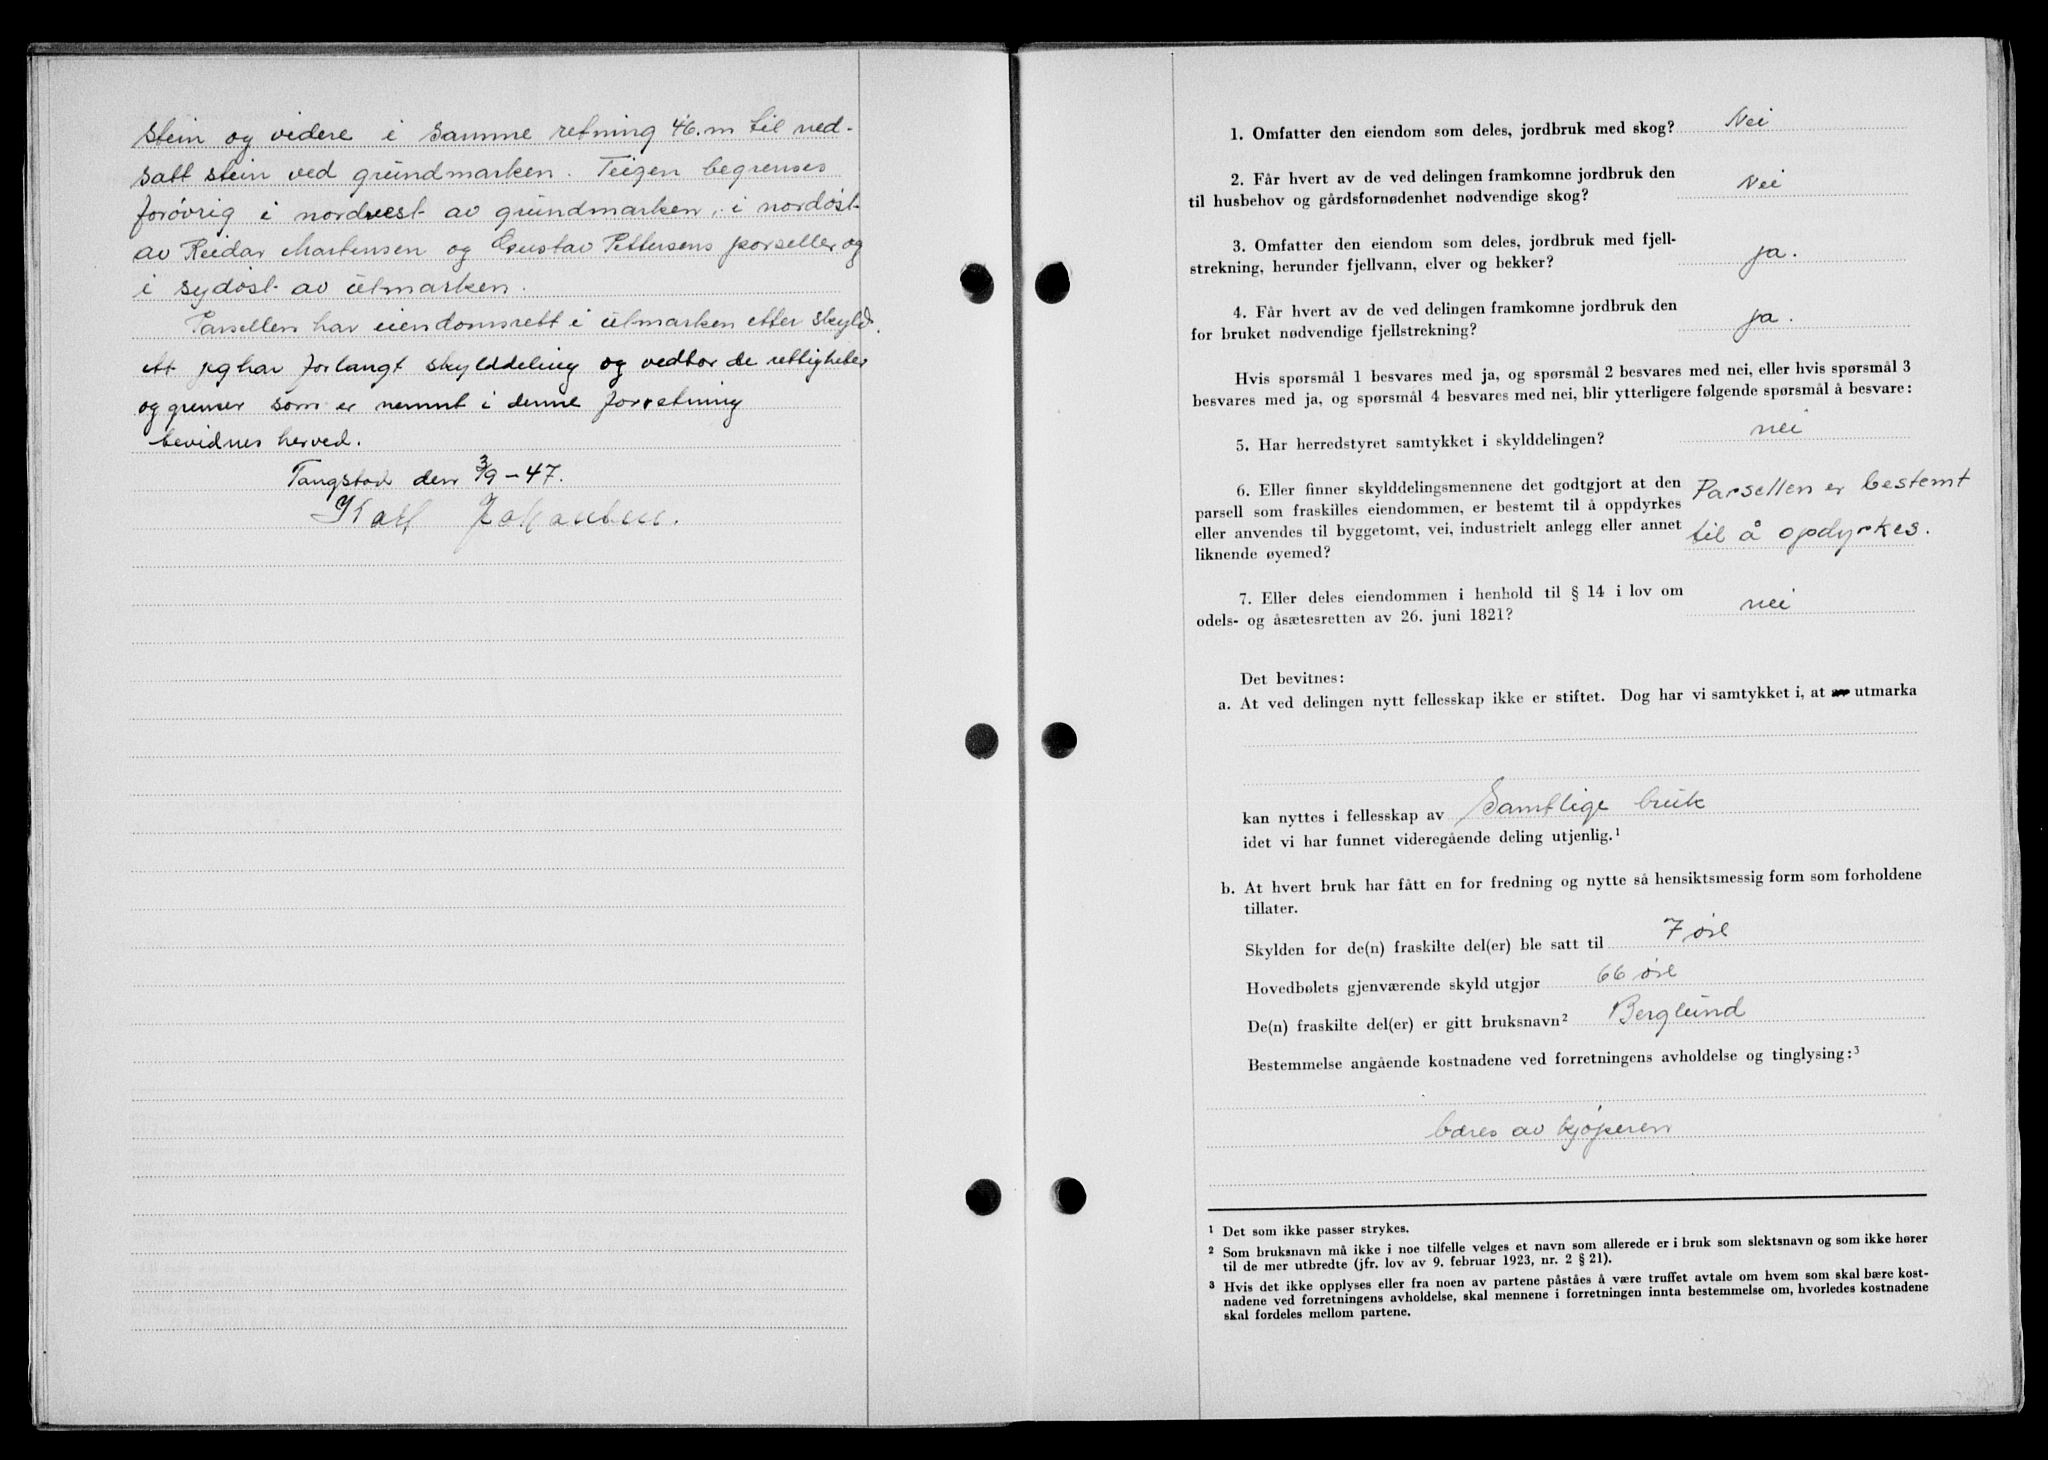 stein og videre i samme retning 46.m til ned-
satt stein ved grundmarken. Teigen begrenses
forøvrig i nordvest av grundmarken, i nordøst
av Reidar Martensen og Gustav Pettersens parseller og
i sydøst av utmarken.
Parsellen har eiendomsrett i utmarken etter skyld.
At jeg har forlangt skylddeling og vedtar de rettigheter
og grenser som er nemnt i denne forretning
bevidnes herved.
Tangstad den 3/9-47.
Karl Johansen.
1. Omfatter den eiendom som deles, jordbruk med skog? Nei
2. Får hvert av de ved delingen framkomne jordbruk den
til husbehov og gårdsfornødenhet nødvendige skog? Nei
3. Omfatter den eiendom som deles, jordbruk med fjell-
strekning, herunder fjellvann, elver og bekker? ja.
4. Får hvert av de ved delingen framkomne jordbruk den
for bruket nødvendige fjellstrekning? ja.
Hvis spørsmål 1 besvares med ja, og spørsmål 2 besvares med nei, eller hvis spørsmål 3
besvares med ja, og spørsmål 4 besvares med nei, blir ytterligere følgende spørsmål å besvare:
5. Har herredstyret samtykket i skylddelingen? nei
6. Eller finner skylddelingsmennene det godtgjort at den
parsell som fraskilles eiendommen, er bestemt til å oppdyrkes
eller anvendes til byggetomt, vei, industrielt anlegg eller annet
liknende øyemed?
Parsellen er bestemt
til å opdyrkes.
7. Eller deles eiendommen i henhold til § 14 i lov om
odels- og åsætesretten av 26. juni 1821? nei
Det bevitnes:
a. At ved delingen nytt fellesskap ikke er stiftet. Dog har vi samtykket i, at utmarka
kan nyttes i fellesskap av Samtlige bruk
idet vi har funnet videregående deling utjenlig.¹
b. At hvert bruk har fått en for fredning og nytte så hensiktsmessig form som forholdene
tillater.
Skylden for de(n) fraskilte del(er) ble satt til 7 øre
Hovedbølets gjenværende skyld utgjør 66 øre
De(n) fraskilte del(er) er gitt bruksnavn² Berglund
Bestemmelse angående kostnadene ved forretningens avholdelse og tinglysing:³
bæres av kjøperen
¹ Det som ikke passer strykes.
² Som bruksnavn må ikke i noe tilfelle velges et navn som allerede er i bruk som slektsnavn og som ikke hører
til de mer utbredte (jfr. lov av 9. februar 1923, nr. 2 § 21).
³ Hvis det ikke opplyses eller fra noen av partene påståes å være truffet avtale om hvem som skal bære kost-
nadene ved forretningens avholdelse, skal mennene i forretningen innta bestemmelse om, hvorledes kostnadene
skal fordeles mellom partene.